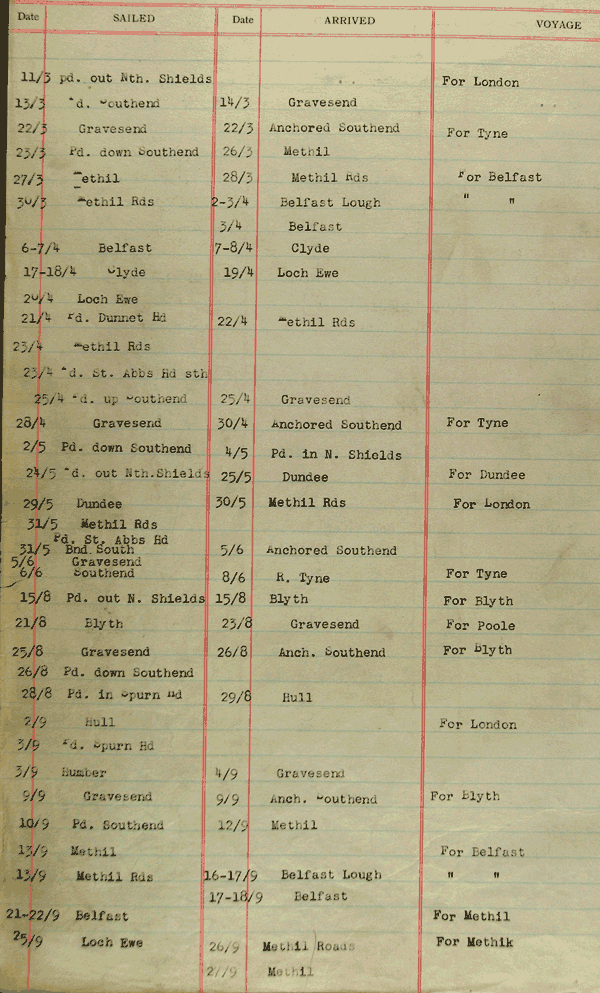 Date SAILED Date ARRIVED VOYAGE
11/3 pd. out Nth. Shields For London
13/3 Pd. Southend 14/3 Gravesend
22/3 Gravesend 22/3 Anchored Southend For Tyne
23/3 Pd. down Southend 26/3 Methil
27/3 Methil 28/3 Methil Rds For Belfast
30/3 Methil Rds 2-3/4 Belfast Lough " "
3/4 Belfast
6-7/4 Belfast 7-8/4 Clyde
17-18/4 Clyde 19/4 Loch Ewe
20/4 Loch Ewe
21/4 Pd. Dunnet Hd 22/4 Methil Rds
23/4 Methil Rds
23/4 Pd. St. Abbs Hd sth
25/4 Pd. up Southend 25/4 Gravesend
28/4 Gravesend 30/4 Anchored Southend For Tyne
2/5 Pd. down Southend 4/5 Pd. in N. Shields
24/5 Pd. out Nth.Shields 25/5 Dundee For Dundee
29/5 Dundee 30/5 Methil Rds For London
31/5 Methil Rds
Pd. St. Abbs Hd
31/5 Bnd South 5/6 Anchored Southend
5/6 Gravesend
6/6 Southend 8/6 R. Tyne For Tyne
15/8 Pd. out N. Shields 15/8 Blyth For Blyth
21/8 Blyth 23/8 Gravesend For Poole
25/8 Gravesend 26/8 Anch. Southend For Blyth
26/8 Pd. down Southend
28/8 Pd. in Spurn Hd 29/8 Hull
2/9 Hull For London
3/9 Pd. Spurn Hd
3/9 Humber 4/9 Gravesend
9/9 Gravesend 9/9 Anch. Southend For Blyth
10/9 Pd. Southend 12/9 Methil
13/9 Methil For Belfast
13/9 Methil Rds 16-17/9 Belfast Lough " "
17-18/9 Belfast
21-22/9 Belfast For Methil
25/9 Loch Ewe 26/9 Methil Roads For Methik
27/9 Methil